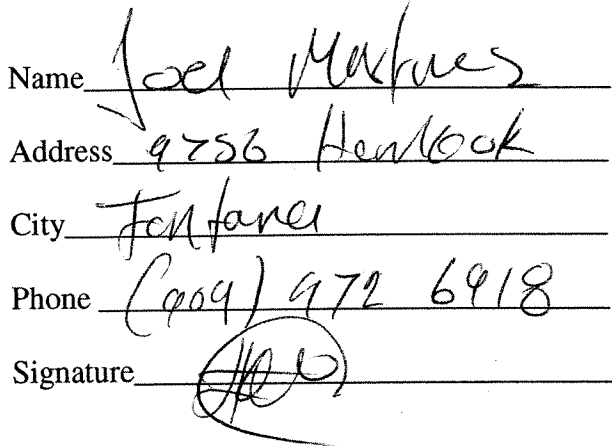 Name Joel Martines
Address 9756 Hemlook
City Fontana
Phone (909) 972 6918
Signature